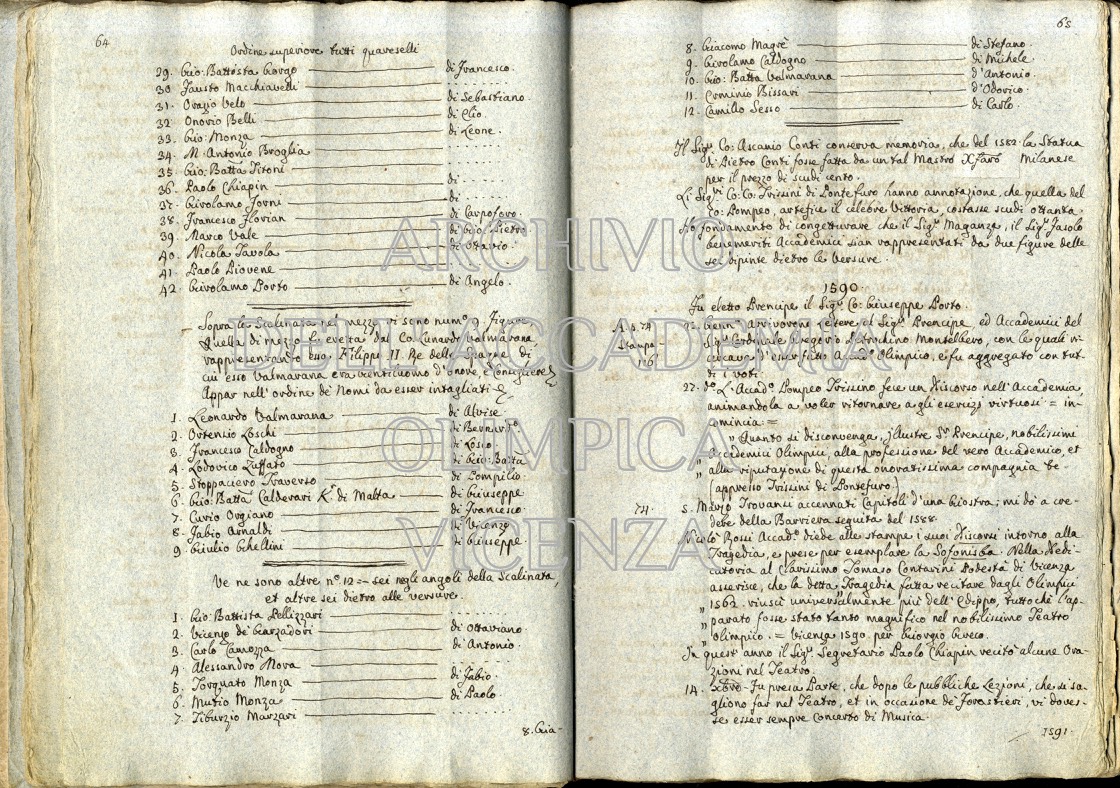 64
Ordine superiore tutti quareselli
29. Gio: Battista Gorgo di Francesco.
30 Fausto Macchiavelli . . . . .
31. Orazio Velo di Sebastiano.
32. Onorio Belli di Elio.
33. Gio: Monza di Leone.
34. M. Antonio Broglia . . . . .
35. Gio: Batta Titoni . . . . .
36. Paolo Chiapin di . . . . .
37. Girolamo Forni di . . . . .
38. Francesco Florian di Carpoforo.
39. Marco Vale di Gio: Pietro
40. Nicola Tavola di Ottavio.
41. Paolo Piovene . . . . .
42. Girolamo Porto di Angelo.
Sopra la Scalinata nel mezzo vi sono num.º 9 figure
Quella di mezzo fu eretta dal Co: Lunardo Valmarana,
rappresentando esso Filippo II. Re delle Spagne di
cui esso Valmarana era Gentiluomo d'onore, e Consigliere
Appar nell'ordine de Nomi da esser intagliati
1. Leonardo Valmarana di Alvise.
2. Ortensio Loschi di Bernard.º
3. Francesco Caldogno di Losco.
4. Lodovico Zuffato di Gio: Batta
5. Stoppaciero Traverso di Pompilio.
6. Gio: Batta Calderari K.r di Malta di Giuseppe
7. Curio Orgiano di Francesco.
8. Fabio Arnaldi di Vicenzo
9. Giulio Ghellini di Giuseppe.
Ve ne sono altre nº 12 = sei negli angoli della Scalinata,
et altre sei dietro alle versure.
1. Gio: Battista Pellizzari . . . . .
2. Vicenzo de Garzadori di Ottaviano.
3. Carlo Camozza di Antonio.
4. Alessandro Mora . . . . .
5. Torquato Monza di Fabio.
6. Mutio Monza di Paolo
7. Tiburzio Marzari . . . . .
8. Gia-
65
8. Giacomo Magrè di Stefano.
9. Girolamo Caldogno di Michele.
10. Gio: Batta Valmarana d'Antonio.
11. Erminio Bissari d'Odorico.
12. Camillo Sesso di Carlo.
Il Sig.r Co: Ascanio Conti conserva memoria, che del 1582 la Statua
di Pietro Conti fosse fatta da un tal Mastro Xfaro Milanese
per il prezzo di scudi cento.
Li Sig.ri Co: Co: Trissini di Pontefuro hanno annotazione, che quella del
Co: Pompeo, artefice il celebre Vittoria, costasse scudi ottanta.
Ho fondamento di congetturare che il Sig.r Maganza, il Sig.r Fasolo
benemeriti Accademici sian rappresentati da due figure delle
sei dipinte dietro le Versure.
1590.
Fu eletto Prencipe il Sig.r Co: Giuseppe Porto.
Stampa
116
23. Genn.º Arrivorono lettere al Sig.r Prencipe, ed Accademici del
Sig.r Cardinale Gregorio Petrochino Montelbero, con le quali ri-
cercava d'esser fatto Accad.º Olimpico, e fu aggregato con tut-
ti i voti.
27. d.º L'Accad.º Pompeo Trissino fece un Discorso nell'Accademia
animandola a voler ritornare agli esercizj virtuosi = in-
comincia =
„ Quanto si disconvenga, illustre S.r Prencipe, nobilissimi
„ Accademici Olimpici, alla professione del vero Accademico, et
„ alla riputazione di questa onoratissima compagnia &c.
(appresso Trissini di Pontefuro.)
74. 5. Marzo Trovansi accennati Capitoli d'una Giostra; mi dò a cre-
dere della Barriera seguita del 1588.
Nicolò Rossi Accad.º diede alle stampe i suoi Discorsi intorno alla
Tragedia, e prese per esemplare la Sofonisba. Nella Dedi-
catoria al Clarissimo Tomaso Contarini Podestà di Vicenza
asserisce, che la detta Tragedia fatta recitare dagli Olimpici
„ 1562. riuscì universalmente più dell'Edippo, tuttochè l'ap-
„ parato fosse stato tanto magnifico nel nobilissimo Teatro
„ Olimpico. = Vicenza 1590 per Giorgio Greco.
In quest'anno il Sig.r Segretario Paolo Chiapin recitò alcune Ora-
zioni nel Teatro.
14. Xbre. Fu presa Parte, che dopo le pubbliche Lezioni, che si so-
gliono far nel Teatro, et in occasione de Forastieri, vi doves-
se esser sempre Concerto di Musica.
1591.
ARCHIVIO
DELL'ACCADEMIA
OLIMPICA
VICENZA